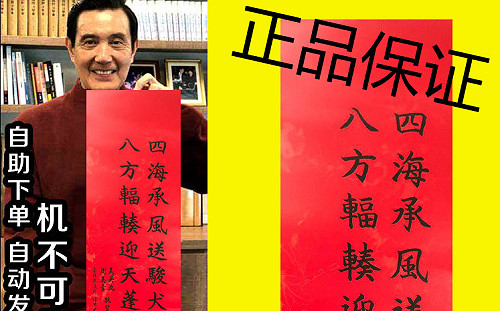 正品保证
自助下单 自动发
机不可
四海承風送駿犬
八方輻輳迎天蓬
四海承風送
八方輻輳迎